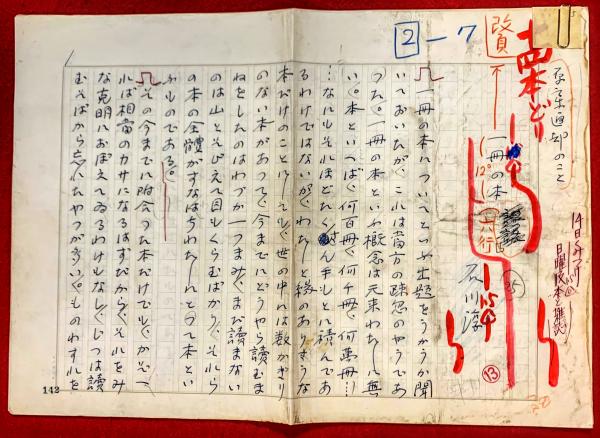 四本どり
改頁
2-7
14日くみつけ
日曜版本と雑誌
一冊の本
12
六行
15
25
石川淳
⑬
一冊の本についてといふ出題をうかうか聞
いておいたが、これは當方の疎忽のやうであ
つた。一冊の本といふ概念は元来わたしに無
い。本といへば、何百冊、何千冊、何萬冊…
…なにもそれほどたくさん手もとに積んであ
るわけではないが、わたしと縁のありさうな
本だけのことにしても、世の中には数かぎり
のない本があつて、今までにどうやら讀むま
ねをしたのはわづか一つまみ、まだ讀まない
のは山とそびえて目もくらむばかり、それら
の本の全體がすなはちわたしにとつて本とい
ふものである。
その今までに附合つた本だけでも、かぞへ
れば相當のカサになるはずだから、それをみ
な克明におぼえてゐるわけもなし、じつは讀
むそばから忘れたやつが多い。ものわすれを
142